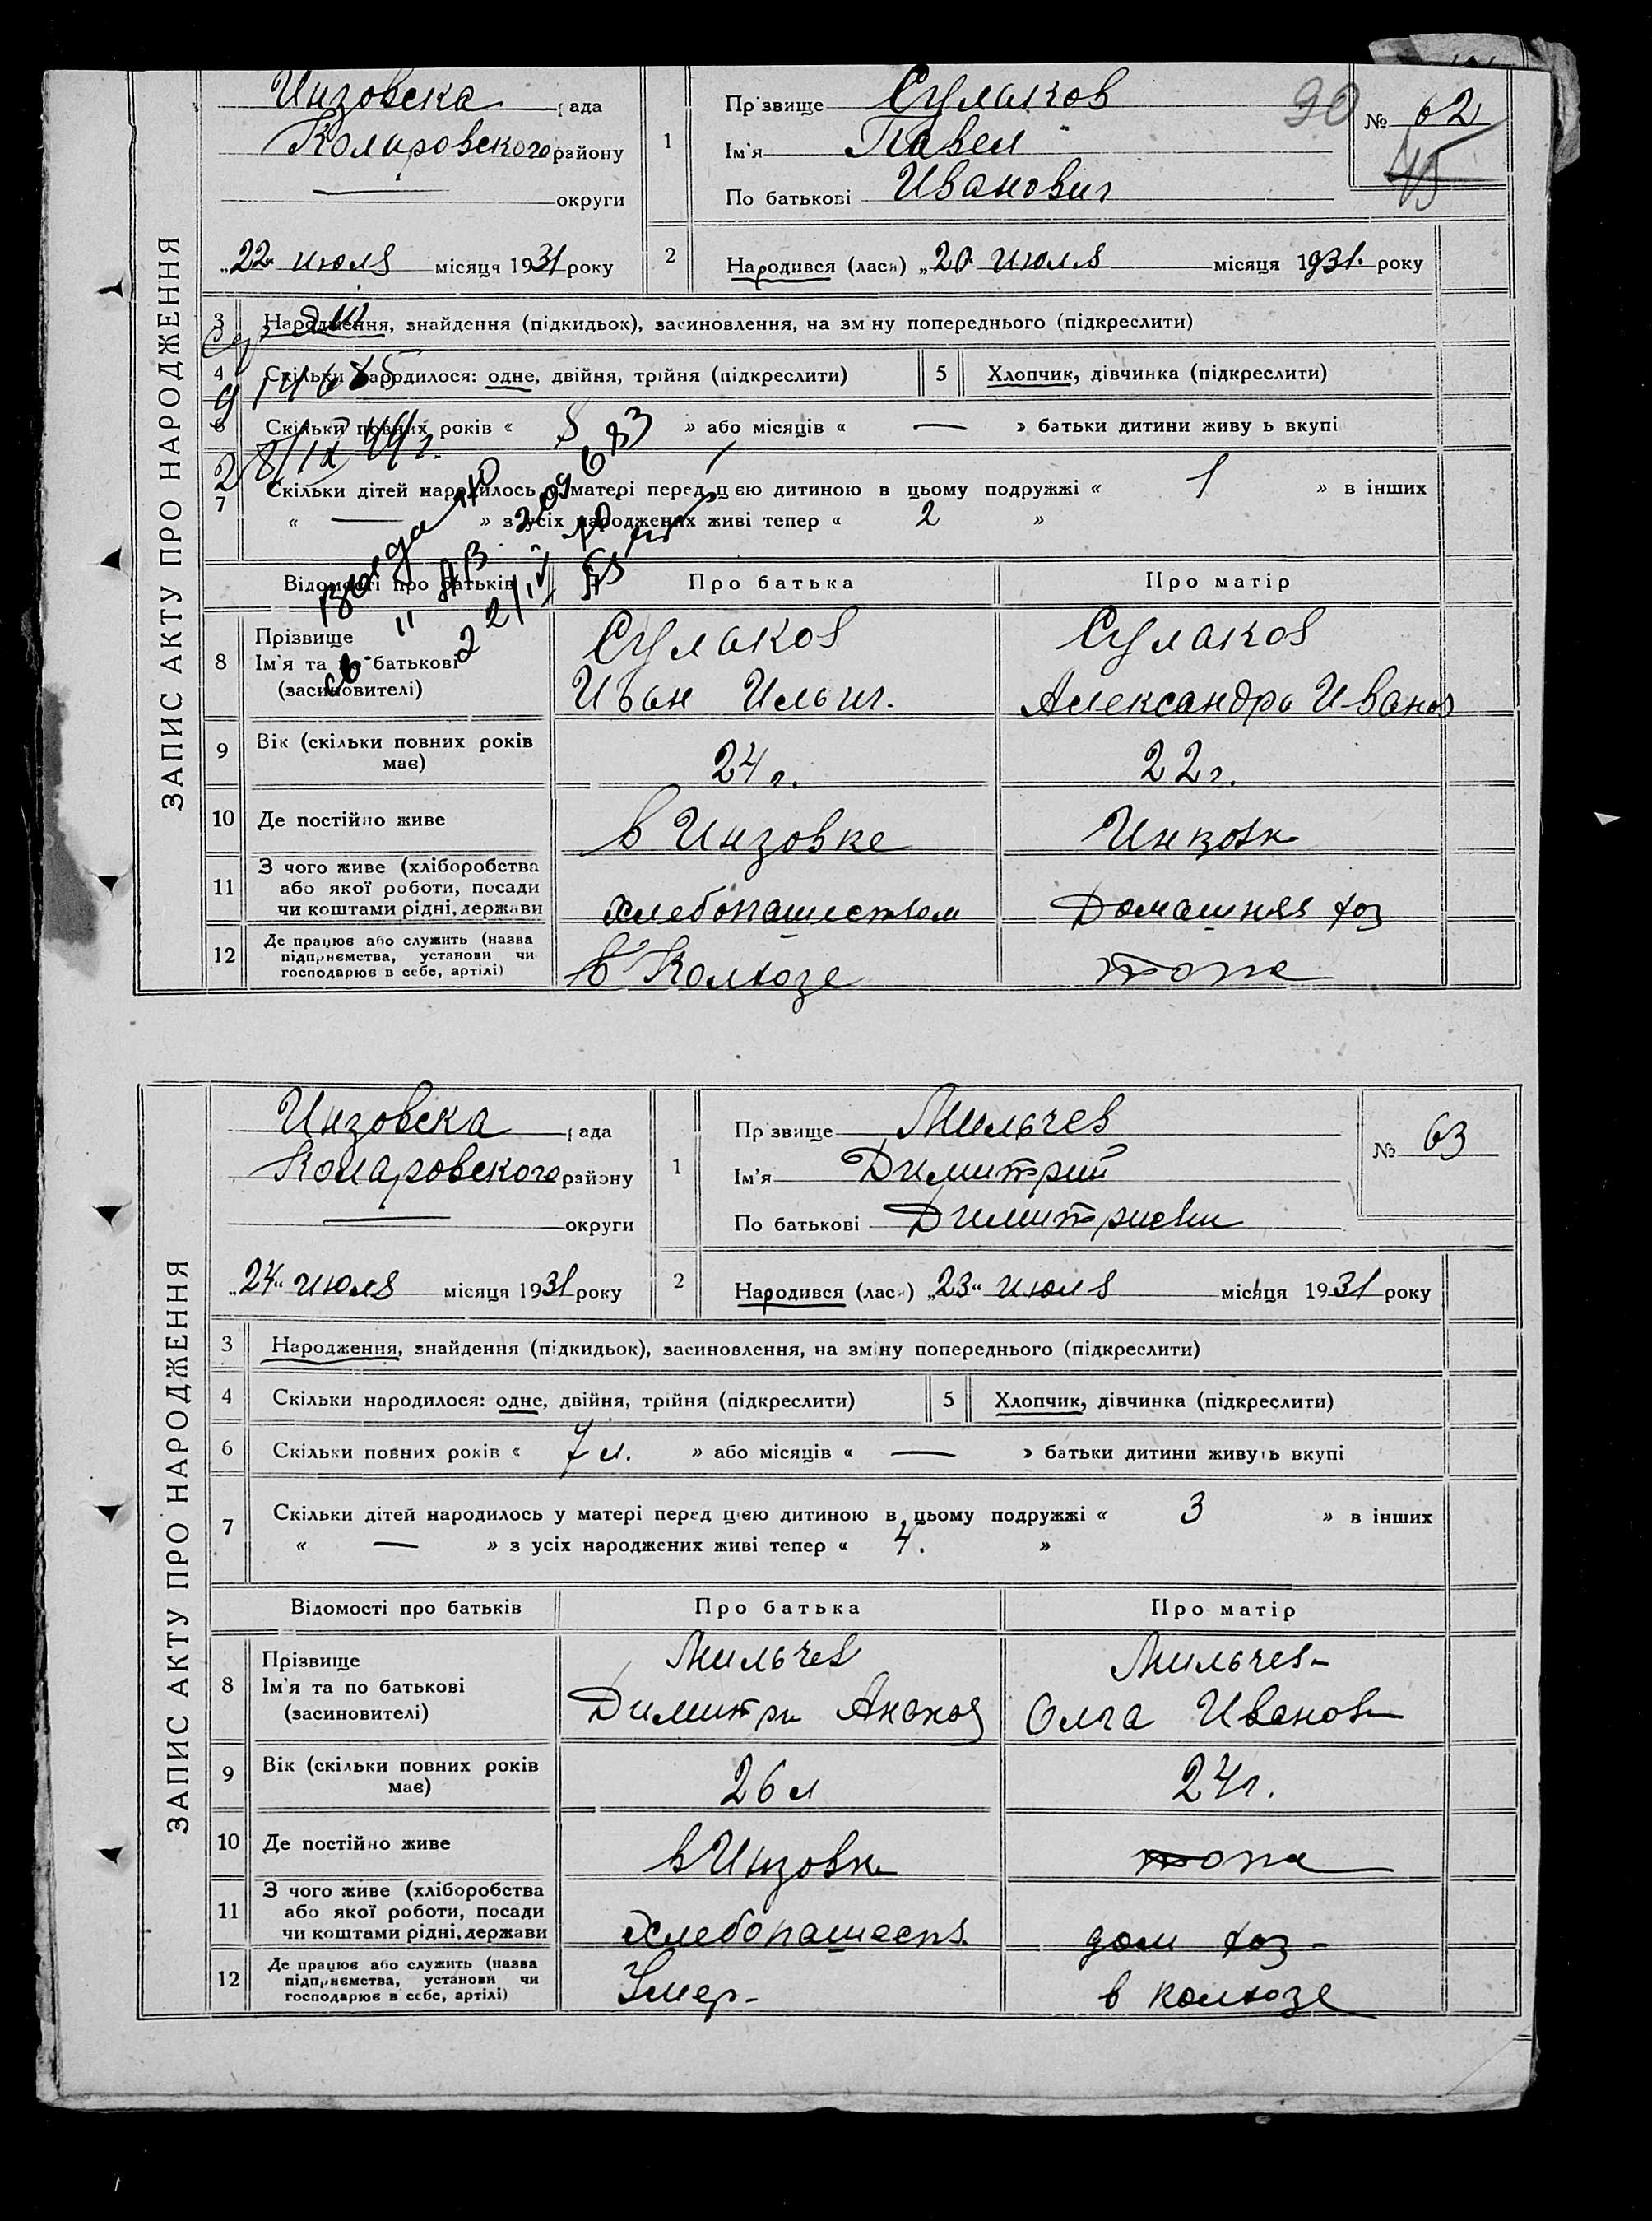 ЗАПИС АКТУ ПРО НАРОДЖЕННЯ
Инзовска рада
Коларовского району
округи
„22 июля місяця 1931 року
1 Прізвище Сулаков
Ім'я Павел
По батькові Иванович
90 № 62
45
2 Народився (лась) „20 июля місяця 1931. року
3 Народження, знайдення (підкидьок), засиновлення, на зміну попереднього (підкреслити)
4 Скільки народилося: одне, двійня, трійня (підкреслити)
5 Хлопчик, дівчинка (підкреслити)
6 Скільки повних років « » або місяців « — » батьки дитини живуть вкупі
7 Скільки дітей народилось у матері перед цією дитиною в цьому подружжі « 1 » в інших
« — » з усіх народжених живі тепер « 2 »
Відомості про батьків Про батька Про матір
8 Прізвище
Ім'я та по батькові
(засиновителі)
Сулаков
Иван Ильич.
Сулаков
Александра Иванов
9 Вік (скільки повних років має) 24 г. 22 г.
10 Де постійно живе в Инзовке Инзовк
11 З чого живе (хліборобства
або якої роботи, посади
чи коштами рідні, держави
хлебопашеством Домашняя хоз
12 Де працює або служить (назва
підприємства, установи чи
господарює в себе, артілі)
в Колхозе тоже
ЗАПИС АКТУ ПРО НАРОДЖЕННЯ
Инзовска рада
Коларовского району
округи
„24" июля місяця 1931 року
1 Прізвище Мильчев
Ім'я Димитрий
По батькові Димитриеви
№ 63
2 Народився (лась) „23" июля місяця 1931 року
3 Народження, знайдення (підкидьок), засиновлення, на зміну попереднього (підкреслити)
4 Скільки народилося: одне, двійня, трійня (підкреслити)
5 Хлопчик, дівчинка (підкреслити)
6 Скільки повних років « 7 л. » або місяців « — » батьки дитини живуть вкупі
7 Скільки дітей народилось у матері перед цією дитиною в цьому подружжі « 3 » в інших
« — » з усіх народжених живі тепер « 4. »
Відомості про батьків Про батька Про матір
8 Прізвище
Ім'я та по батькові
(засиновителі)
Мильчев
Димитри
Мильчев-
Олга Иванов
9 Вік (скільки повних років має) 26 л 24 г.
10 Де постійно живе в Инзовк тоже
11 З чого живе (хліборобства
або якої роботи, посади
чи коштами рідні, держави
Хлебопашеств. дом хоз-
12 Де працює або служить (назва
підприємства, установи чи
господарює в себе, артілі)
Умер- в колхозе